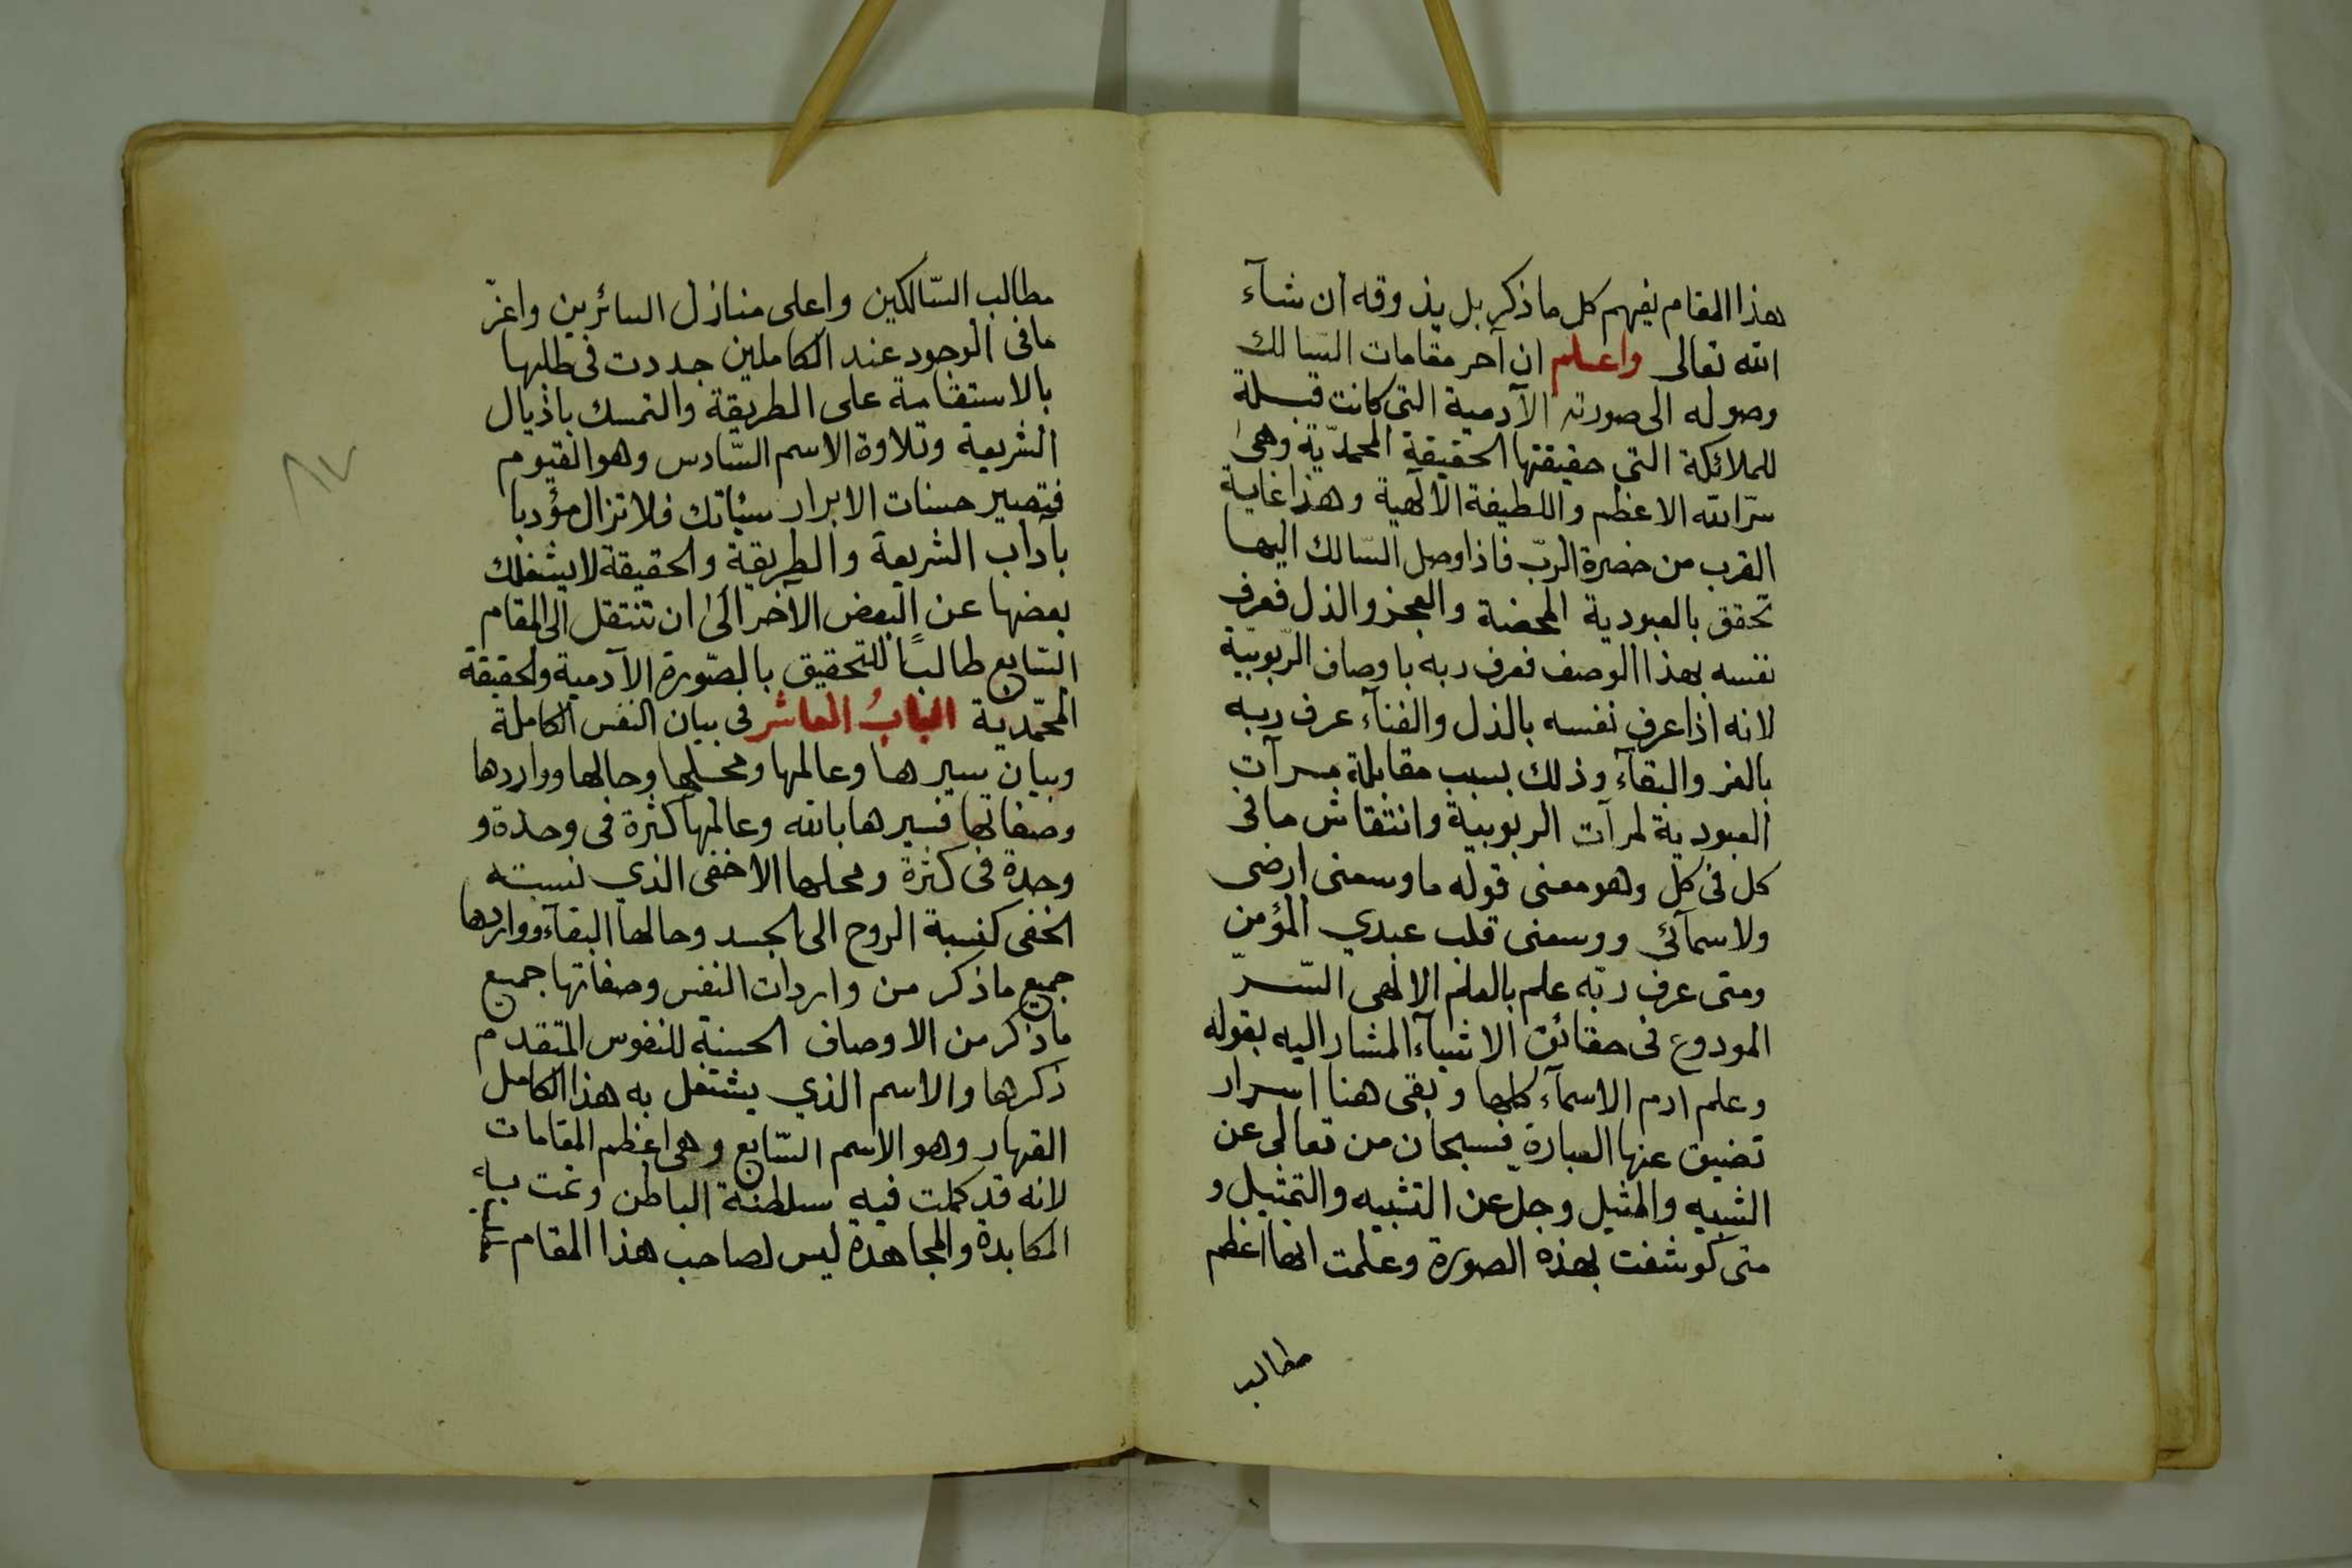 هذا المقام يفهم كل ما ذكر بل يذوقه ان شآء
الله تعالى واعلم ان آخر مقامات السّالك
وصوله الى صورته الآدمية التى كانت قبلة
للملائكة التي حقيقتها الحقيقة المحمديّة وهى
سرّ الله الاعظم واللطيفة الالهية وهذا غاية
القرب من حضرة الربّ فاذا وصل السّالك اليها
تحقق بالعبودية المحضة والعجز والذل فعرف
نفسه بهذا الوصف فعرف ربه باوصاف الرّبوبيّة
لانه اذا عرف نفسه بالذل والفنآء عرف ربه
بالعز والبقآء وذلك بسبب مقابلة مرآت
العبودية لمرآت الربوبية وانتقاش ما فى
كل فى كل وهو معنى قوله ما وسعنى ارضى
ولا سمآئي ووسعنى قلب عبدي المؤمن
ومتى عرف ربّه علم بالعلم الالهى السّرّ
المودوع فى حقائق الاشيآء المشار اليه بقوله
وعلم ادم الاسمآء كلها وبقى هنا اسرار
تضيق عنها العبارة فسبحان من تعالى عن
الشبيه والمثيل وجلّ عن التشبيه والتمثيل و
متى كوشفت بهذه الصورة وعلمت انها اعظم
مطالب
مطالب السّالكين واعلى منازل السائرين واعزّ
ما فى الوجود عند الكاملين جددت فى طلبها
بالاستقامة على الطريقة والتمسك باذيال
الشريعة وتلاوة الاسم السّادس وهو القيوم
فتصير حسنات الابرار سيئاتك فلا تزال مؤدبا
بآداب الشريعة والطريقة والحقيقة لا يشغلك
بعضها عن البعض الآخر الى ان تنتقل الى المقام
السّابع طالبًا للتحقيق بالصّورة الآدمية والحقيقة
المحمّدية البابُ العاشر فى بيان النفس الكاملة
وبيان سيرها وعالمها ومحلها وحالها وواردها
وصفاتها فسيرها بالله وعالمها كثرة فى وحدة و
وحدة فى كثرة ومحلها الاخفى الذي نسبته
الخفى كنسبة الروح الى الجسد وحالها البقآء وواردها
جميع ما ذكر من واردات النفس وصفاتها جميع
ما ذكر من الاوصاف الحسنة للنفوس المتقدم
ذكرها والاسم الذي يشتغل به هذا الكامل
القهار وهو الاسم السّابع وهى اعظم المقامات
لانه قد كملت فيه سلطنة الباطن وتمت به
المكابدة والمجاهدة ليس لصاحب هذا المقام